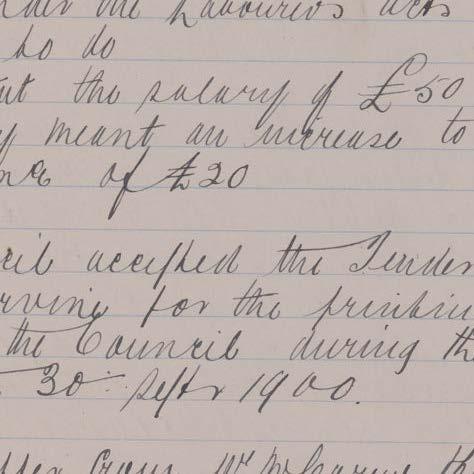 the Labourers acts
to do
the salary of £50
meant an increase to
of £20
accepted the Tender
for the printin
the Council during th
30th Septr 1900.